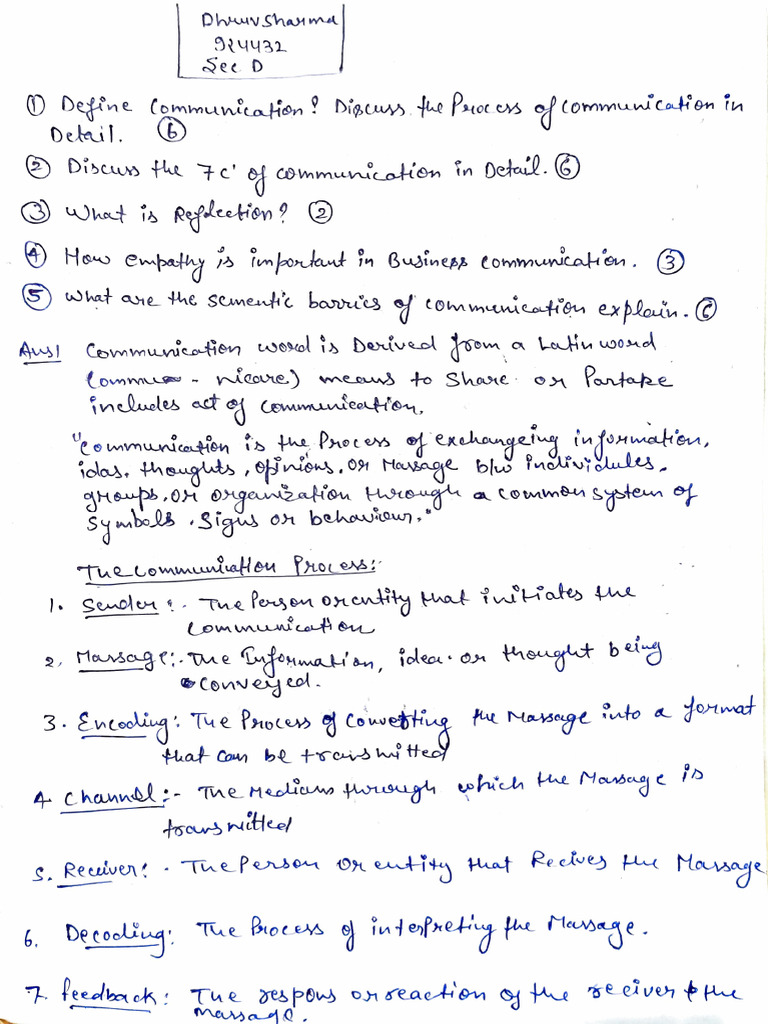 Dhruv Sharma
924432
Sec D
① Define Communication? Discuss the Process of communication in
Detail. ⑥
② Discuss the 7c' of communication in Detail. ⑥
③ What is Reflection? ②
④ How empathy is important in Business communication. ③
⑤ what are the sementic barries of communication explain. ⑥
Ans1 Communication word is Derived from a Latin word
(commu - nicare) means to Share or Partake
includes act of communication.
"communication is the Process of exchangeing information,
idas, thoughts, opinions, or Massage b/w individules,
groups, or organization through a common system of
Symbols, signs or behaviour."
The communication Process:-
1. Sender:- The Person or entity that initiates the
communication
2. Massage:- The Information, idea or thought being
conveyed.
3. Encoding: The Process of converting the Massage into a format
that can be transmitted
4. Channel:- The Mediam through which the Massage is
transmitted
5. Receiver:- The Person or entity that Recives the Massage
6. Decoding: The Process of interpreting the Massage.
7. feedback: The respons or reaction of the reciver to the
Massage.